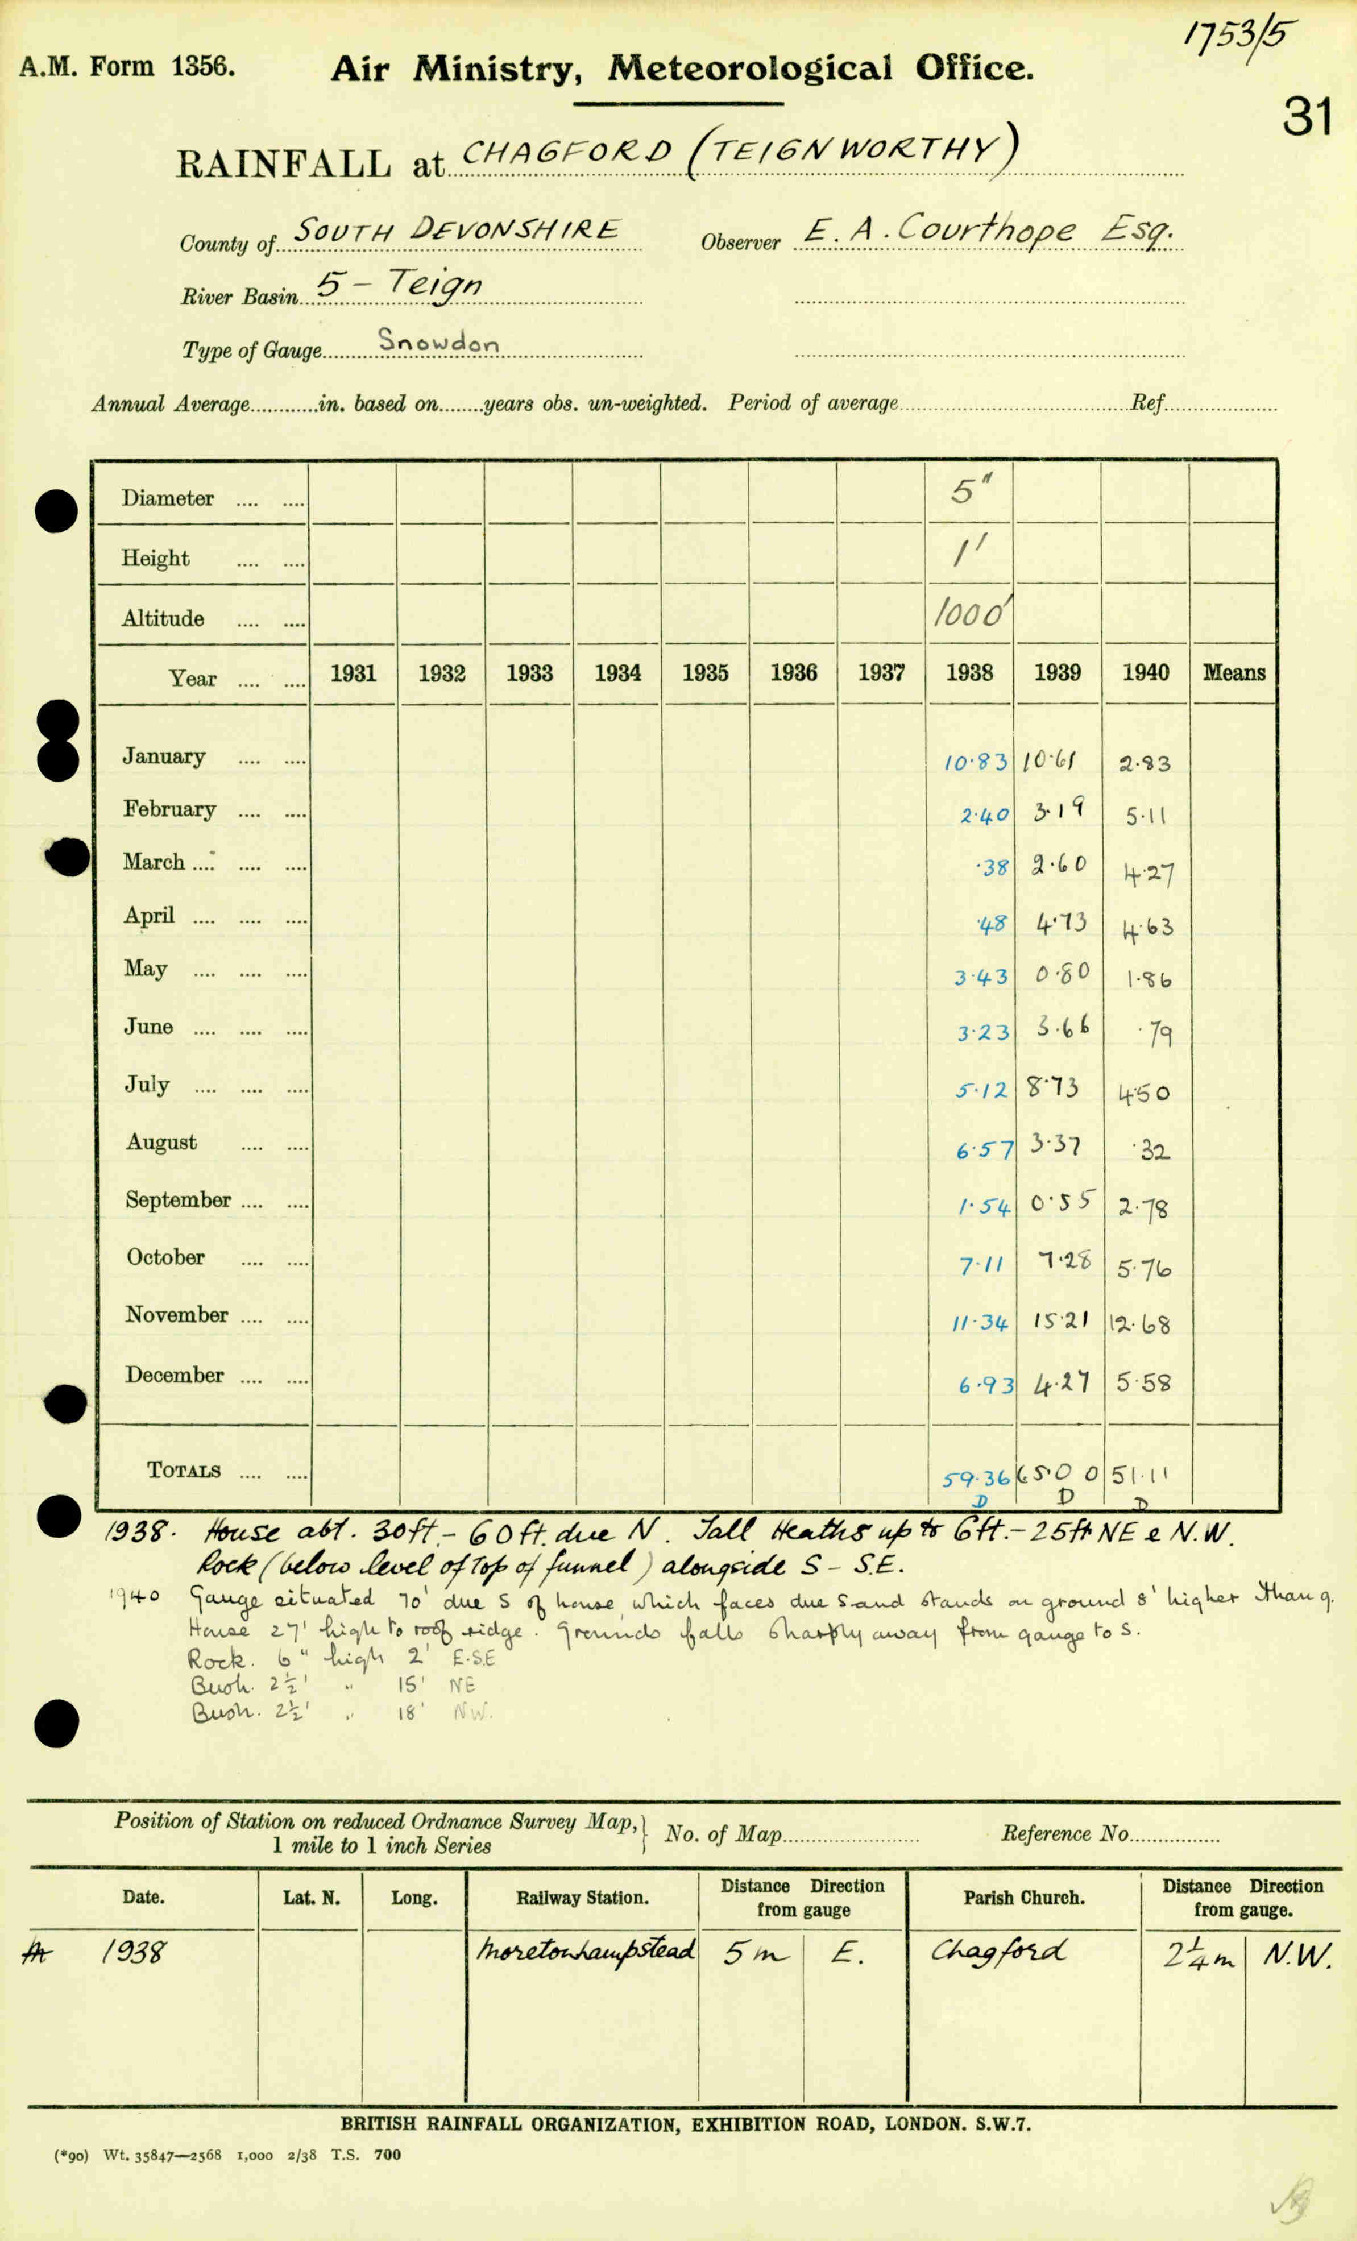 1753/5
A.M. Form 1356. Air Ministry, Meteorological Office.
31
RAINFALL at CHAGFORD (TEIGNWORTHY)
County of SOUTH DEVONSHIRE Observer E. A. Courthope Esq.
River Basin 5 - Teign
Type of Gauge Snowdon
Annual Average............in. based on........years obs. un-weighted. Period of average.................... Ref....................
Diameter .... .... 5"
Height .... .... 1'
Altitude .... .... 1000'
Year .... .... 1931 1932 1933 1934 1935 1936 1937 1938 1939 1940 Means
January .... .... 10.83 10.61 2.83
February .... .... 2.40 3.19 5.11
March .... .... .... .38 2.60 4.27
April .... .... .... .48 4.73 4.63
May .... .... .... 3.43 0.80 1.86
June .... .... .... 3.23 3.66 .79
July .... .... .... 5.12 8.73 4.50
August .... .... 6.57 3.37 .32
September .... .... 1.54 0.55 2.78
October .... .... 7.11 7.28 5.76
November .... .... 11.34 15.21 12.68
December .... .... 6.93 4.27 5.58
TOTALS .... .... 59.36 65.00 51.11
D D D
1938. House abt. 30ft - 60ft. due N. Tall Heaths up to 6ft. - 25ft NE & N.W.
Rock (below level of top of funnel) alongside S - S.E.
1940 Gauge situated 70' due S of house, which faces due S and stands on ground 8' higher than g.
House 27' high to roof ridge. Grounds falls sharply away from gauge to S.
Rock. 6" high 2' E.S.E
Bush. 2½' " 15' NE
Bush. 2½' " 18' NW.
Position of Station on reduced Ordnance Survey Map,} No. of Map........................ Reference No................
1 mile to 1 inch Series
Date. Lat. N. Long. Railway Station. Distance Direction from gauge Parish Church. Distance Direction from gauge.
1938 Moretonhampstead 5 m E. Chagford 2¼ m N.W.
BRITISH RAINFALL ORGANIZATION, EXHIBITION ROAD, LONDON. S.W.7.
(*90) Wt. 35847—2568 1,000 2/38 T.S. 700